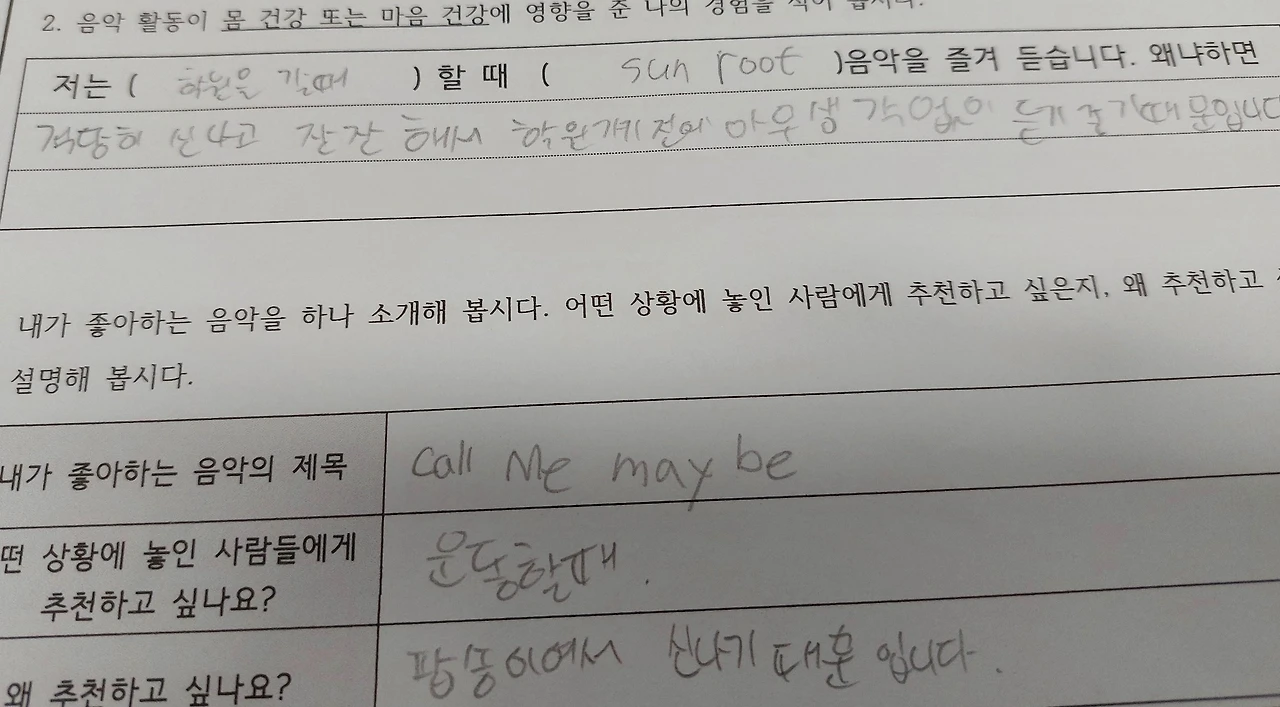 2. 음악 활동이 몸 건강 또는 마음 건강에 영향을 준 나의 경험을 적어 봅시다.
저는 ( 학원을 갈때 ) 할 때 ( sun root )음악을 즐겨 듣습니다. 왜냐하면
적당히 신나고 잔잔 해서 학원가기전에 아무생각없이 듣기 좋기때문입니다
내가 좋아하는 음악을 하나 소개해 봅시다. 어떤 상황에 놓인 사람에게 추천하고 싶은지, 왜 추천하고
설명해 봅시다.
내가 좋아하는 음악의 제목
Call Me may be
떤 상황에 놓인 사람들에게
추천하고 싶나요?
운동할때.
왜 추천하고 싶나요?
팝송이여서 신나기 때문 입니다.